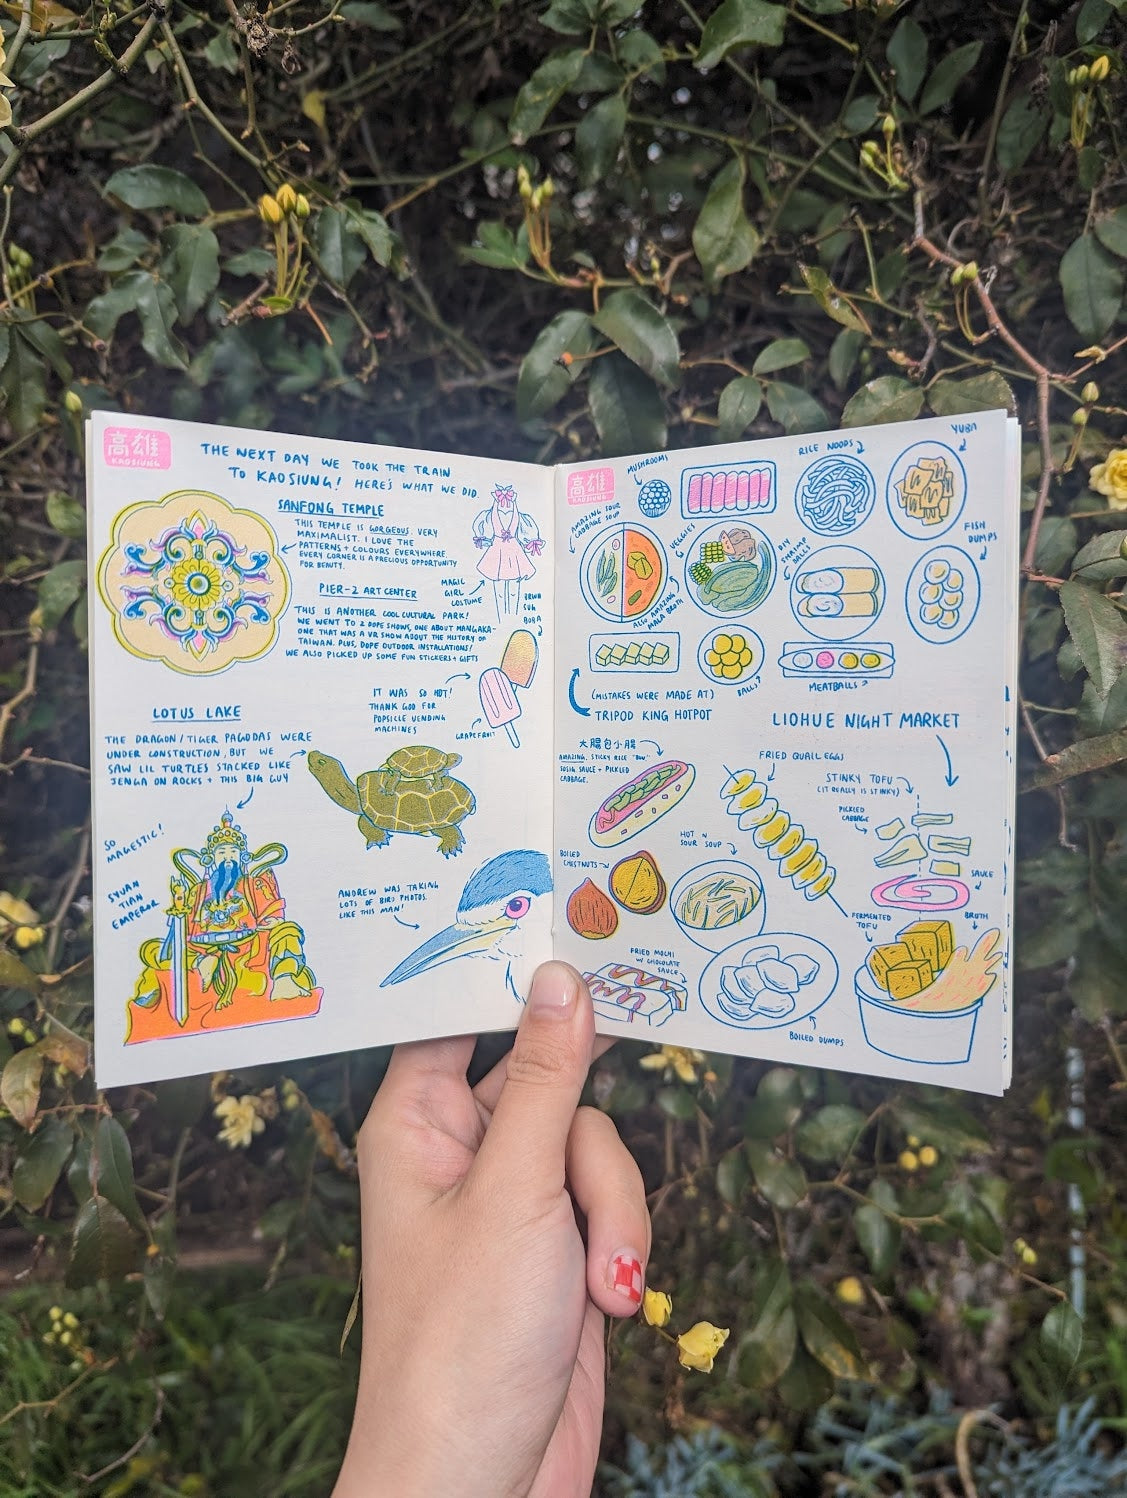 高雄
KAOSIUNG
THE NEXT DAY WE TOOK THE TRAIN
TO KAOSIUNG! HERE'S WHAT WE DID.
SANFONG TEMPLE
THIS TEMPLE IS GORGEOUS. VERY
MAXIMALIST. I LOVE THE
PATTERNS + COLOURS EVERYWHERE.
EVERY CORNER IS A PRECIOUS OPPORTUNITY
FOR BEAUTY.
MAGIC
GIRL
COSTUME
PIER-2 ART CENTER
THIS IS ANOTHER COOL CULTURAL PARK!
WE WENT TO 2 DOPE SHOWS, ONE ABOUT MANGAKA-
ONE THAT WAS A VR SHOW ABOUT THE HISTORY OF
TAIWAN. PLUS, DOPE OUTDOOR INSTALLATIONS!
WE ALSO PICKED UP SOME FUN STICKERS + GIFTS
BRWN
SUG
BOBA
IT WAS SO HOT!
THANK GOD FOR
POPSICLE VENDING
MACHINES
GRAPEFRUIT
LOTUS LAKE
THE DRAGON/TIGER PAGODAS WERE
UNDER CONSTRUCTION, BUT WE
SAW LIL TURTLES STACKED LIKE
JENGA ON ROCKS + THIS BIG GUY
SO
MAGESTIC!
SYUAN
TIAN
EMPEROR
ANDREW WAS TAKING
LOTS OF BIRD PHOTOS.
LIKE THIS MAN!
高雄
KAOSIUNG
MUSHROOMS
RICE NOODS
YUBA
AMAZING SOUR
CABBAGE SOUP
VEGGIES
DIY
SHRIMP
BALLS
FISH
DUMPS
ALSO AMAZING
MALA BROTH
BALLS?
MEATBALLS?
(MISTAKES WERE MADE AT)
TRIPOD KING HOTPOT
LIOHUE NIGHT MARKET
大腸包小腸
AMAZING. STICKY RICE "BUN"
SOSIG SAUCE + PICKLED
CABBAGE.
FRIED QUAIL EGGS
STINKY TOFU
(IT REALLY IS STINKY)
PICKLED
CABBAGE
SAUCE
BOILED
CHESTNUTS
HOT N
SOUR SOUP
FERMENTED
TOFU
BROTH
FRIED MOCHI
W/ CHOCOLATE
SAUCE
BOILED DUMPS